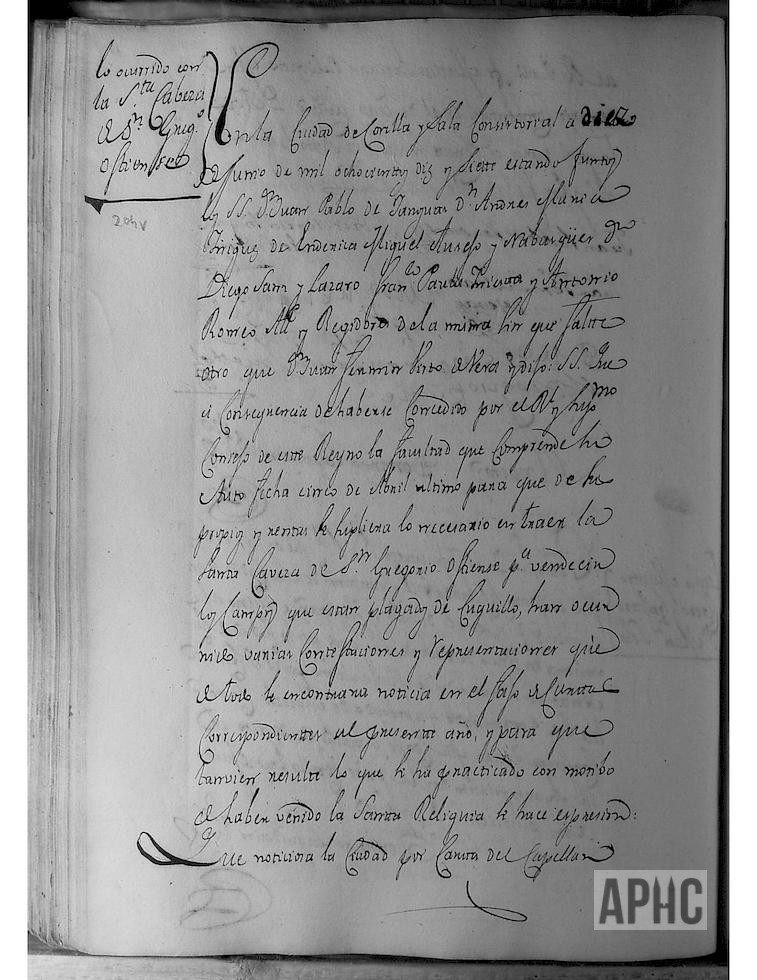 lo ocurrido con
la S.ta Cabeza
de S.n Greg.o
Ostiense
204v
En la Ciudad de Corella y Sala Consistorial a diez
de Junio de mil ochocientos diez y siete estando Juntos
los SS. D.n Juan Pablo de Tanguas D.n Andres Maria
Iñiguez de Miguel y D.n
Diego Sanz y Lazaro Fran.co Paula y Antonio
Romeo Alc.e y Regidores de la misma sin que falte
otro que D.n Juan Fermin Virto de Vera y dijo: SS. Que
a Consequencia de haberse Concedido por el R.l y Sup.mo
Consejo de este Reyno la facultad que Comprende su
Auto fecha cinco de Abril ultimo para que de sus
propios y rentas se supliera lo necesario en traer la
Santa Caveza de S.n Gregorio Ostiense p.a vendecir
los Campos que estan plagados de Cuquillo, han ocur
rido varias Contestaciones y representaciones que
de todo se encontrara noticia en el fajo de Cartas
Correspondientes al presente año, y para que
tanvien resulte lo que se ha practicado con motibo
de haber venido la Santa Reliquia se hace espresion:
Que noticiosa la Ciudad por Carta del Capellan
APHC